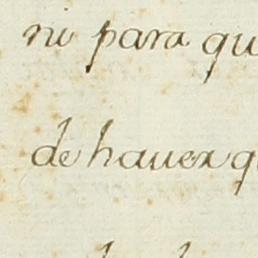 ni para qu
de hauer q